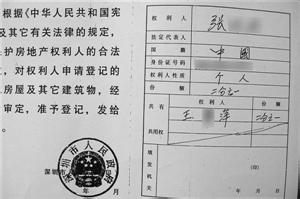 根据《中华人民共和国宪
及其它有关法律的规定，
护房地产权利人的合法
，对权利人申请登记的
房屋及其它建筑物，经
审定，准予登记，发给
深圳市人民政府
深圳市
年 月
权利人 张
法定代表人
国籍 中國
身份证号码
权利人性质 个人
份额 二分之一
共有
共用权
权利人 份额
王 萍 二分之一
填发机关
(印)
年 月